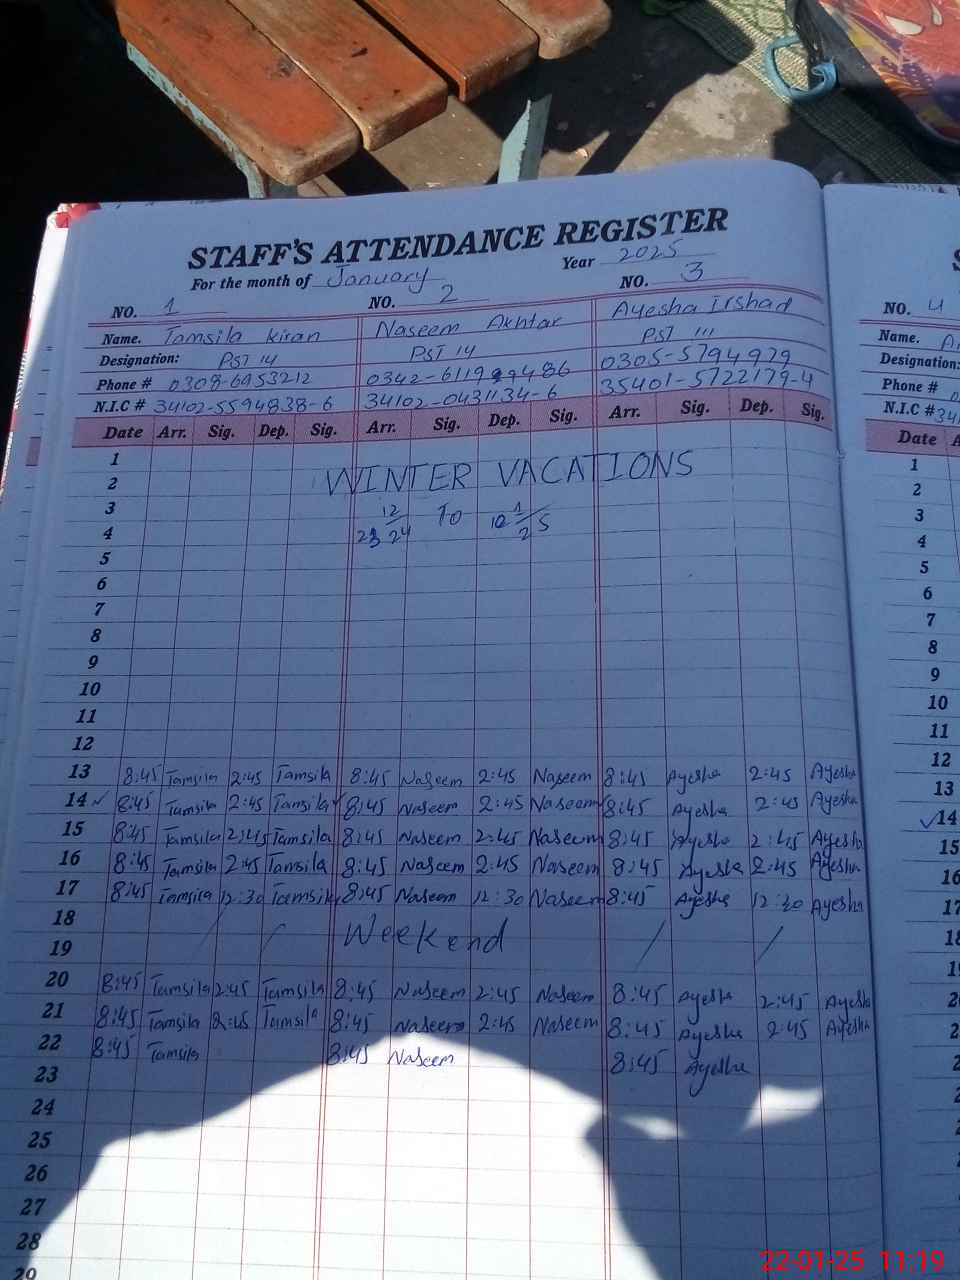 STAFF'S ATTENDANCE REGISTER
For the month of January Year 2025
NO. 1 NO. 2 NO. 3
Name. Tamsila Kiran Naseem Akhtar Ayesha Irshad
Designation: PST 14 PST 14 PST 111
Phone # 0308-6953212 0342-6119 9486 0305-5794979
N.I.C # 34102-5594838-6 34102-0431134-6 35401-5722179-4
Date Arr. Sig. Dep. Sig. Arr. Sig. Dep. Sig. Arr. Sig. Dep. Sig.
1
2 WINTER VACATIONS
3 12 To 1
4 23 24 10 25
5
6
7
8
9
10
11
12
13 8:45 Tamsila 2:45 Tamsila 8:45 Naseem 2:45 Naseem 8:45 Ayesha 2:45 Ayesha
14 ✓ 8:45 Tamsila 2:45 Tamsila 8:45 Naseem 2:45 Naseem 8:45 Ayesha 2:45 Ayesha
15 8:45 Tamsila 2:45 Tamsila 8:45 Naseem 2:45 Naseem 8:45 Ayesha 2:45 Ayesha
16 8:45 Tamsila 2:45 Tamsila 8:45 Naseem 2:45 Naseem 8:45 Ayesha 2:45 Ayesha
17 8:45 Tamsila 12:30 Tamsila 8:45 Naseem 12:30 Naseem 8:45 Ayesha 12:30 Ayesha
18 Weekend
19
20 8:45 Tamsila 2:45 Tamsila 8:45 Naseem 2:45 Naseem 8:45 Ayesha 2:45 Ayesha
21 8:45 Tamsila 2:45 Tamsila 8:45 Naseem 2:45 Naseem 8:45 Ayesha 2:45 Ayesha
22 8:45 Tamsila 8:45 Naseem 8:45 Ayesha
23
24
25
26
27
28
29
NO. 4
Name.
Designation:
Phone #
N.I.C # 34
Date
1
2
3
4
5
6
7
8
9
10
11
12
13
✓ 14
15
16
17
18
22-01-25 11:19